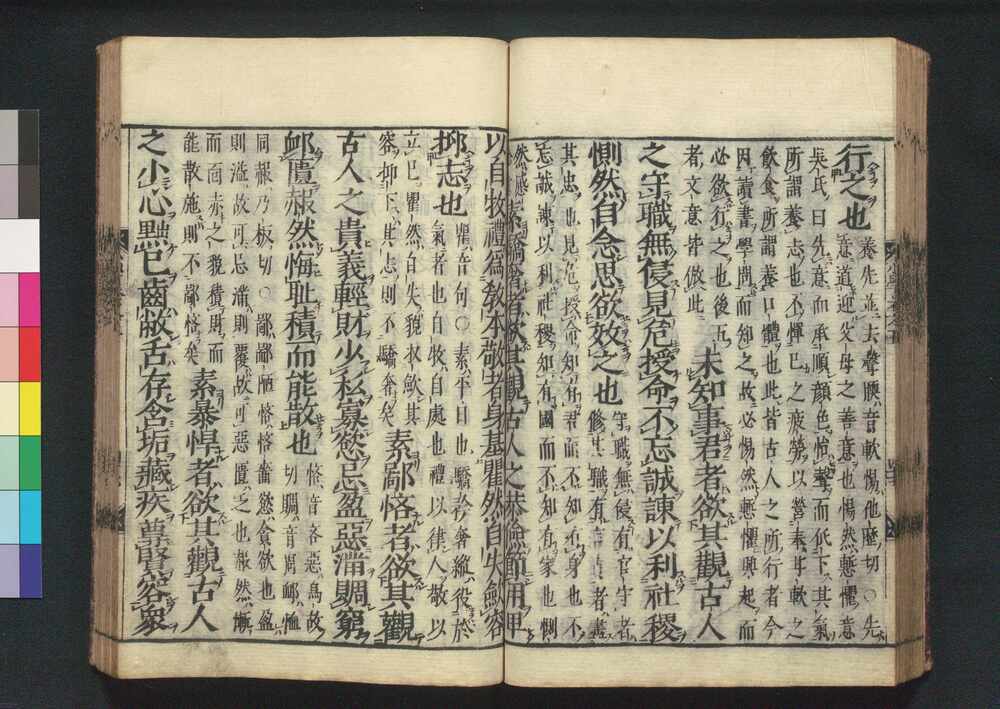 行之也 養先並去聲腝音軟惕他歷切○先
意道迎父母之善意也惕然慙懼意
吳氏曰先意而承順顏色怡聲而低下其氣
所謂養志也不憚己之疲勞以營奉其軟之
飲食所謂養口體也此皆古人之所行者今
因讀書學問而知之故必惕然慙懼興起而
必欲行之也後五
者文意皆倣此 未知事君者欲其觀古人
之守職無侵見危授命不忘誠諫以利社稷
惻然自念思欲效之也 守職無侵有官守者
修其職有言責者盡
其忠也見危授命知有君而不知有身也不
忘誠諫以利社稷知有國而不知有家也惻
然感 素驕奢者欲其觀古人之恭儉節用卑
以自牧禮爲敎本敬者身基瞿然自失歛容
抑志也 瞿音句○素平日也驕矜奢縱役於
氣者也自牧自處也禮以律人敬以
立己瞿然自失貌歛其
容抑下其志則不驕奢矣 素鄙悋者欲其觀
古人之貴義輕財少私寡慾忌盈惡滿賙窮
卹匱赧然悔耻積而能散也 悋音吝惡烏故
切賙音周卹恤
同赧乃板切○鄙鄙陋悋悋嗇慾貪欲也盈
則溢故可忌滿則覆故可惡匱乏也赧然慚
而面赤之貌積則而
能散施則不鄙悋矣 素暴悍者欲其觀古人
之小心黜己齒敝舌存含垢藏疾尊賢容衆